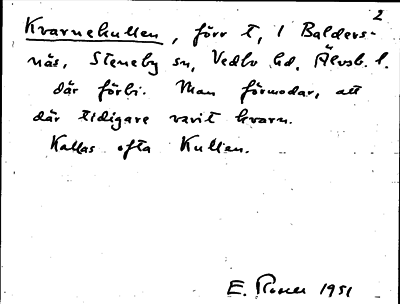 2
Kvarnekullen, förr t, 1 Balders-
näs, Steneby sn, Vedbo hd, Älvsb. l.
där förbi. Man förmodar, att
där tidigare varit kvarn.
Kallas ofta Kullen.
E. Rosén 1951